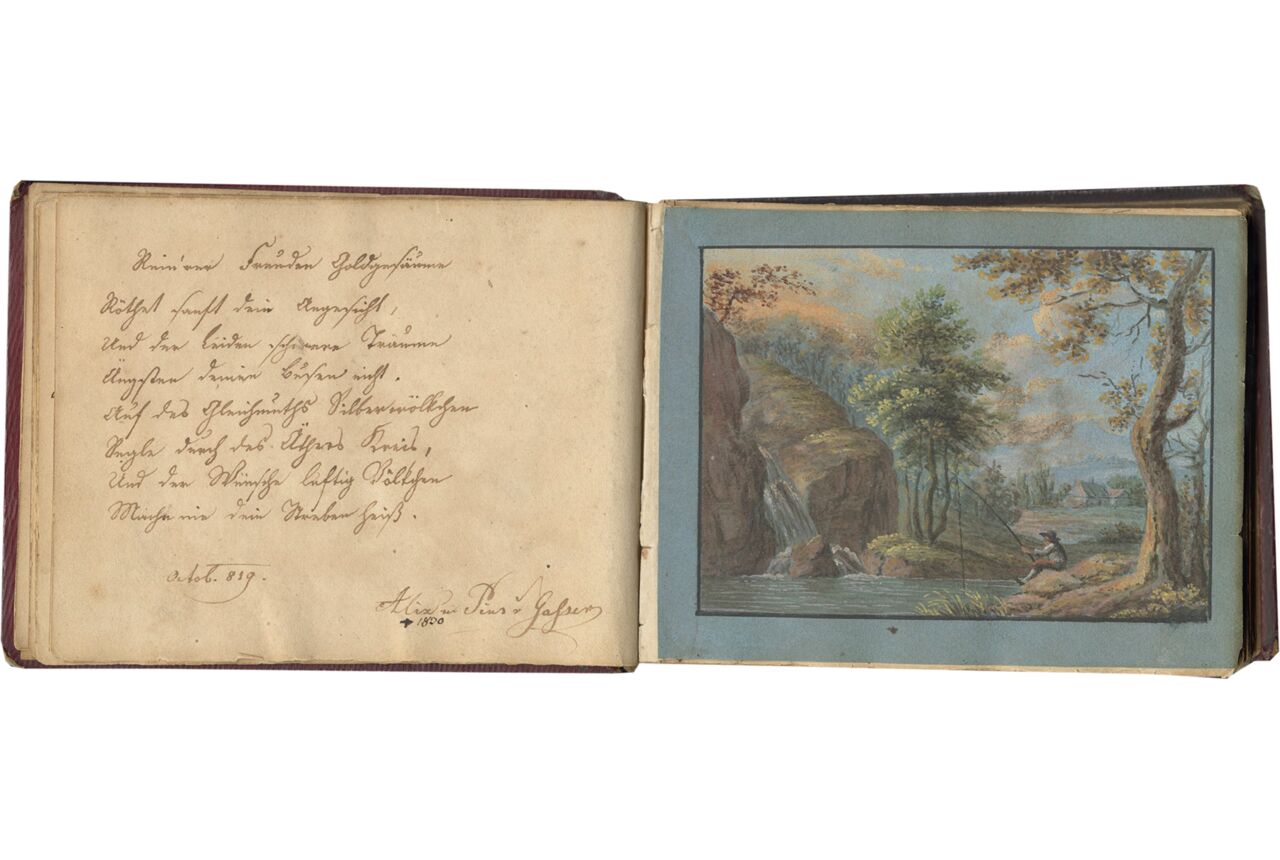 Reinerer Freuden Goldgesäume
Röthet sanft dein Angesicht,
Und der Leiden schwere Träume
Ängsten deinen Busen nicht.
Auf des Gleichmuths Silberwölkchen
Segle durch des Äthers Kreis,
Und der Wünsche luftig Völkchen
Mache nie dein Streben heiß.
Octob. 819.
Alix Pius
1830